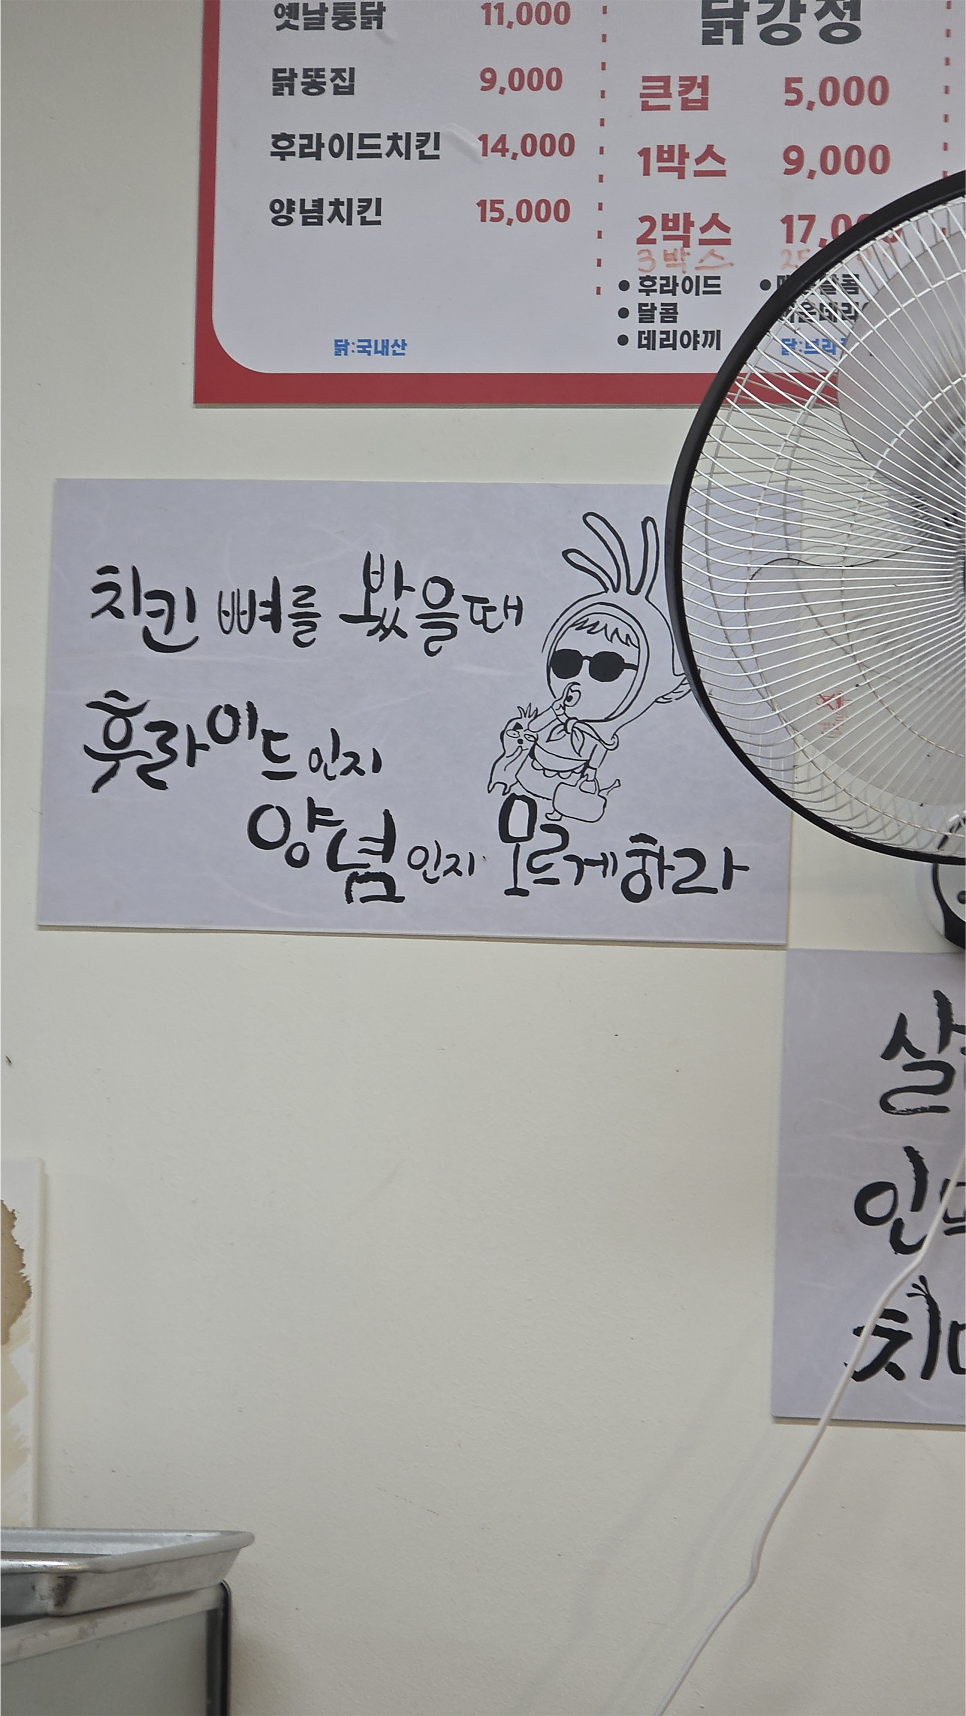 옛날통닭 11,000
닭똥집 9,000
후라이드치킨 14,000
양념치킨 15,000
닭:국내산
닭강정
큰컵 5,000
1박스 9,000
2박스
3박스
• 후라이드
• 달콤
• 데리야끼
치킨 뼈를 봤을때
후라이드인지
양념인지 모르게하라